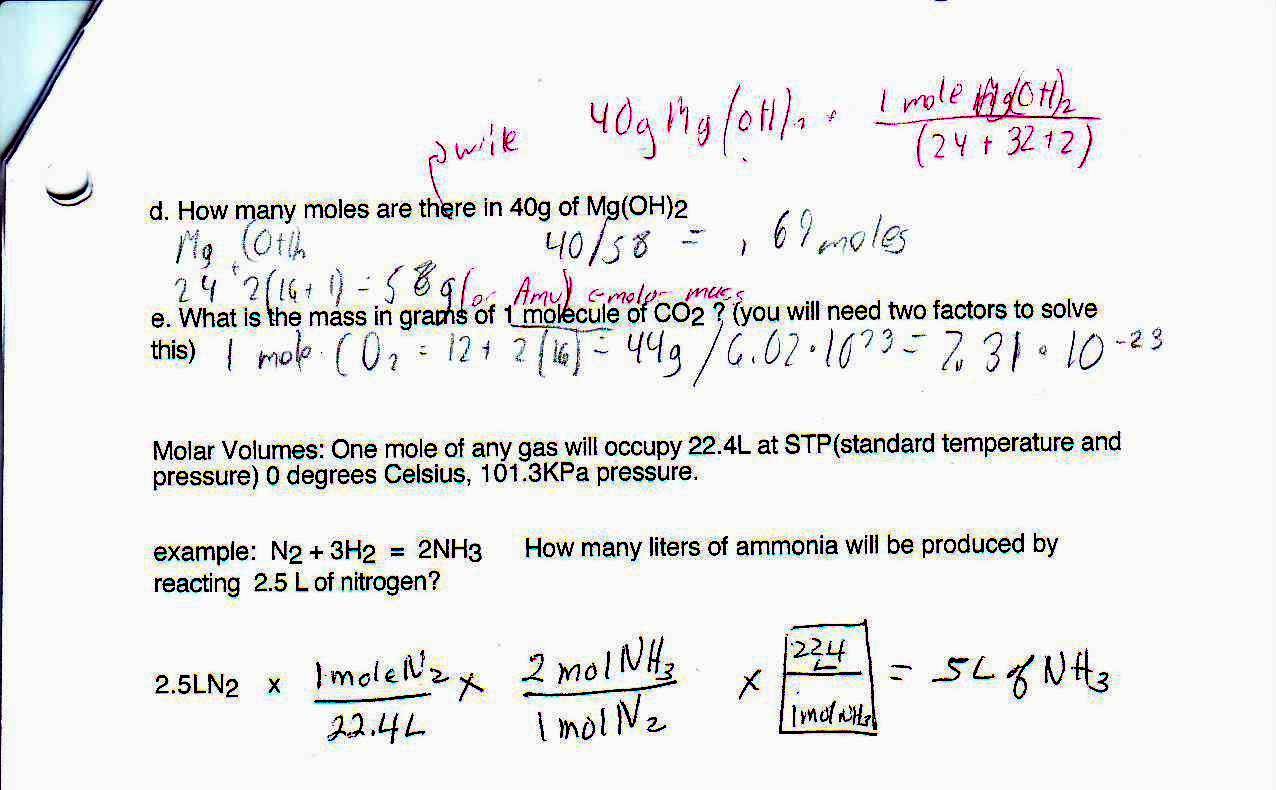 40g Mg(OH)2 · 1 mole Mg(OH)2
(24 + 32 + 2)
d. How many moles are there in 40g of Mg(OH)2
Mg (OH)2 40/58 = .69 moles
24 + 2(16+1) = 58g (or Amu) molar mass
e. What is the mass in grams of 1 molecule of CO2 ? (you will need two factors to solve
this) 1 mole CO2 = 12 + 2(16) = 44g / 6.02·10^23 = 7.31 · 10^-23
Molar Volumes: One mole of any gas will occupy 22.4L at STP(standard temperature and
pressure) 0 degrees Celsius, 101.3KPa pressure.
example: N2 + 3H2 = 2NH3 How many liters of ammonia will be produced by
reacting 2.5 L of nitrogen?
1 mole N2 2 mol NH3 22.4
2.5LN2 x x x L = 5L of NH3
22.4L 1 mol N2 1 mol NH3